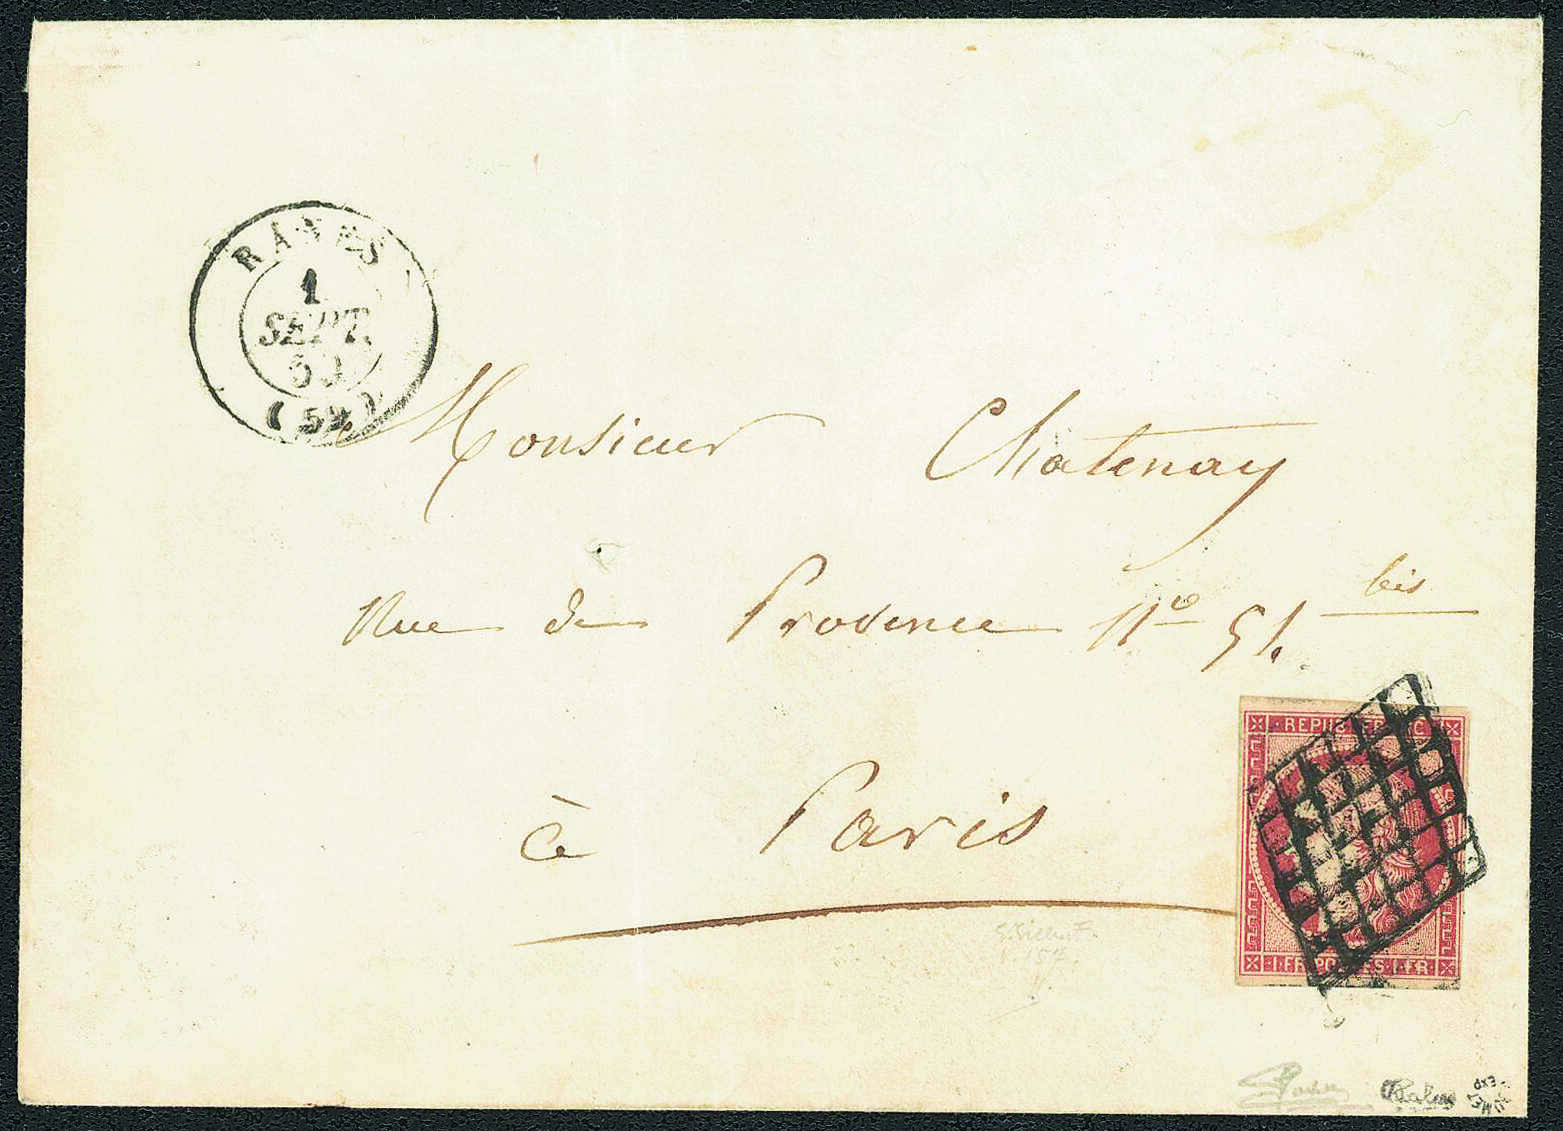 RANES
1
SEPT.
50
(59)
Monsieur Chatenay
Rue de Provence N° 51. bis
à Paris
REPUB FRANC
1.FR POSTES 1.FR
Calves